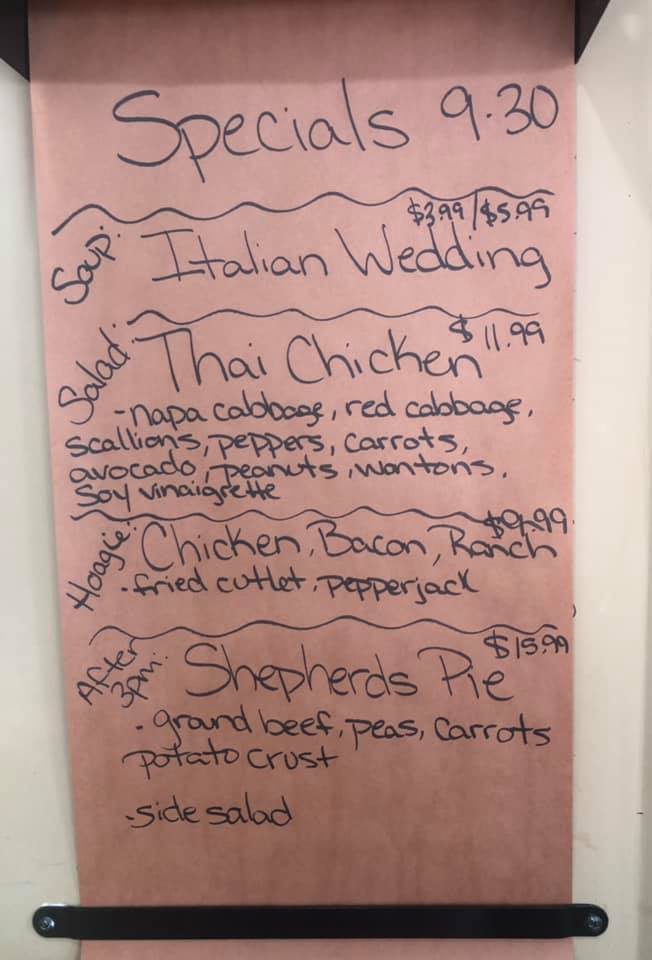 Specials 9.30
$3.99/$5.99
Soup: Italian Wedding
$11.99
Salad: Thai Chicken
-napa cabbage, red cabbage,
scallions, peppers, carrots,
avocado, peanuts, wontons,
Soy vinaigrette
$9.99
Hoagie: Chicken, Bacon, Ranch
-fried cutlet, pepperjack
$15.99
After 3pm: Shepherds Pie
-ground beef, peas, carrots
potato crust
-side salad